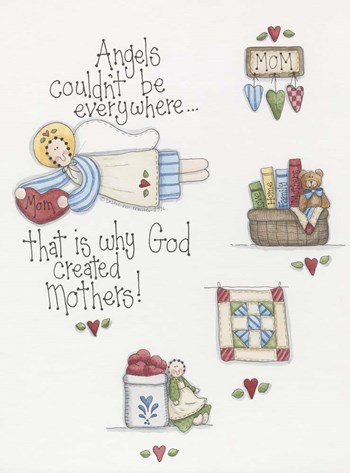 Angels
couldn't be
everywhere...
MOM
Mom
Home
Family
that is why God
created
Mothers!